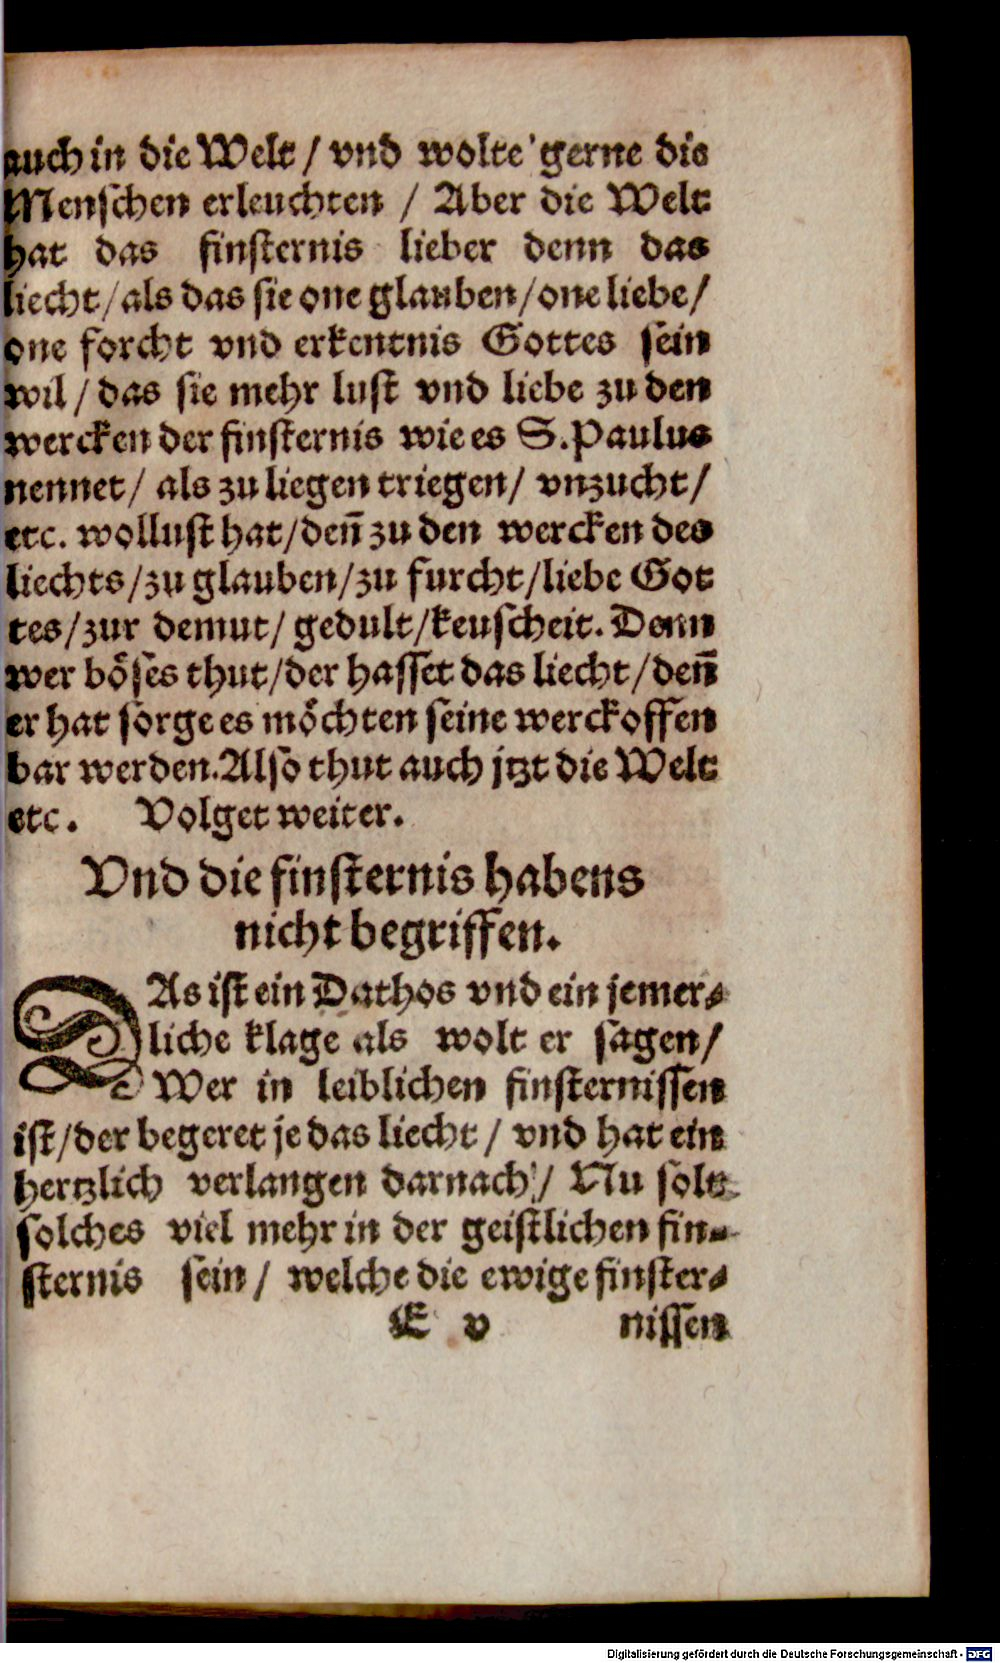 auch in die Welt / vnd wolte gerne die
Menschen erleuchten / Aber die Welt
hat das finsternis lieber denn das
liecht / als das sie one glauben / one liebe /
one forcht vnd erkentnis Gottes sein
wil / das sie mehr lust vnd liebe zu den
wercken der finsternis wie es S. Paulus
nennet / als zu liegen triegen / vnzucht /
etc. wollust hat / deñ zu den wercken des
liechts / zu glauben / zu furcht / liebe Got
tes / zur demut / gedult / keuscheit. Denn
wer böses thut / der hasset das liecht / deñ
er hat sorge es möchten seine werck offen
bar werden. Also thut auch jtzt die Welt
etc. Volget weiter.
Vnd die finsternis habens
nicht begriffen.
DAs ist ein Pathos vnd ein jemer⸗
liche klage als wolt er sagen /
Wer in leiblichen finsternissen
ist / der begeret je das liecht / vnd hat ein
hertzlich verlangen darnach / Nu solt
solches viel mehr in der geistlichen fin⸗
sternis sein / welche die ewige finster⸗
E v nissen
Digitalisierung gefördert durch die Deutsche Forschungsgemeinschaft - DFG